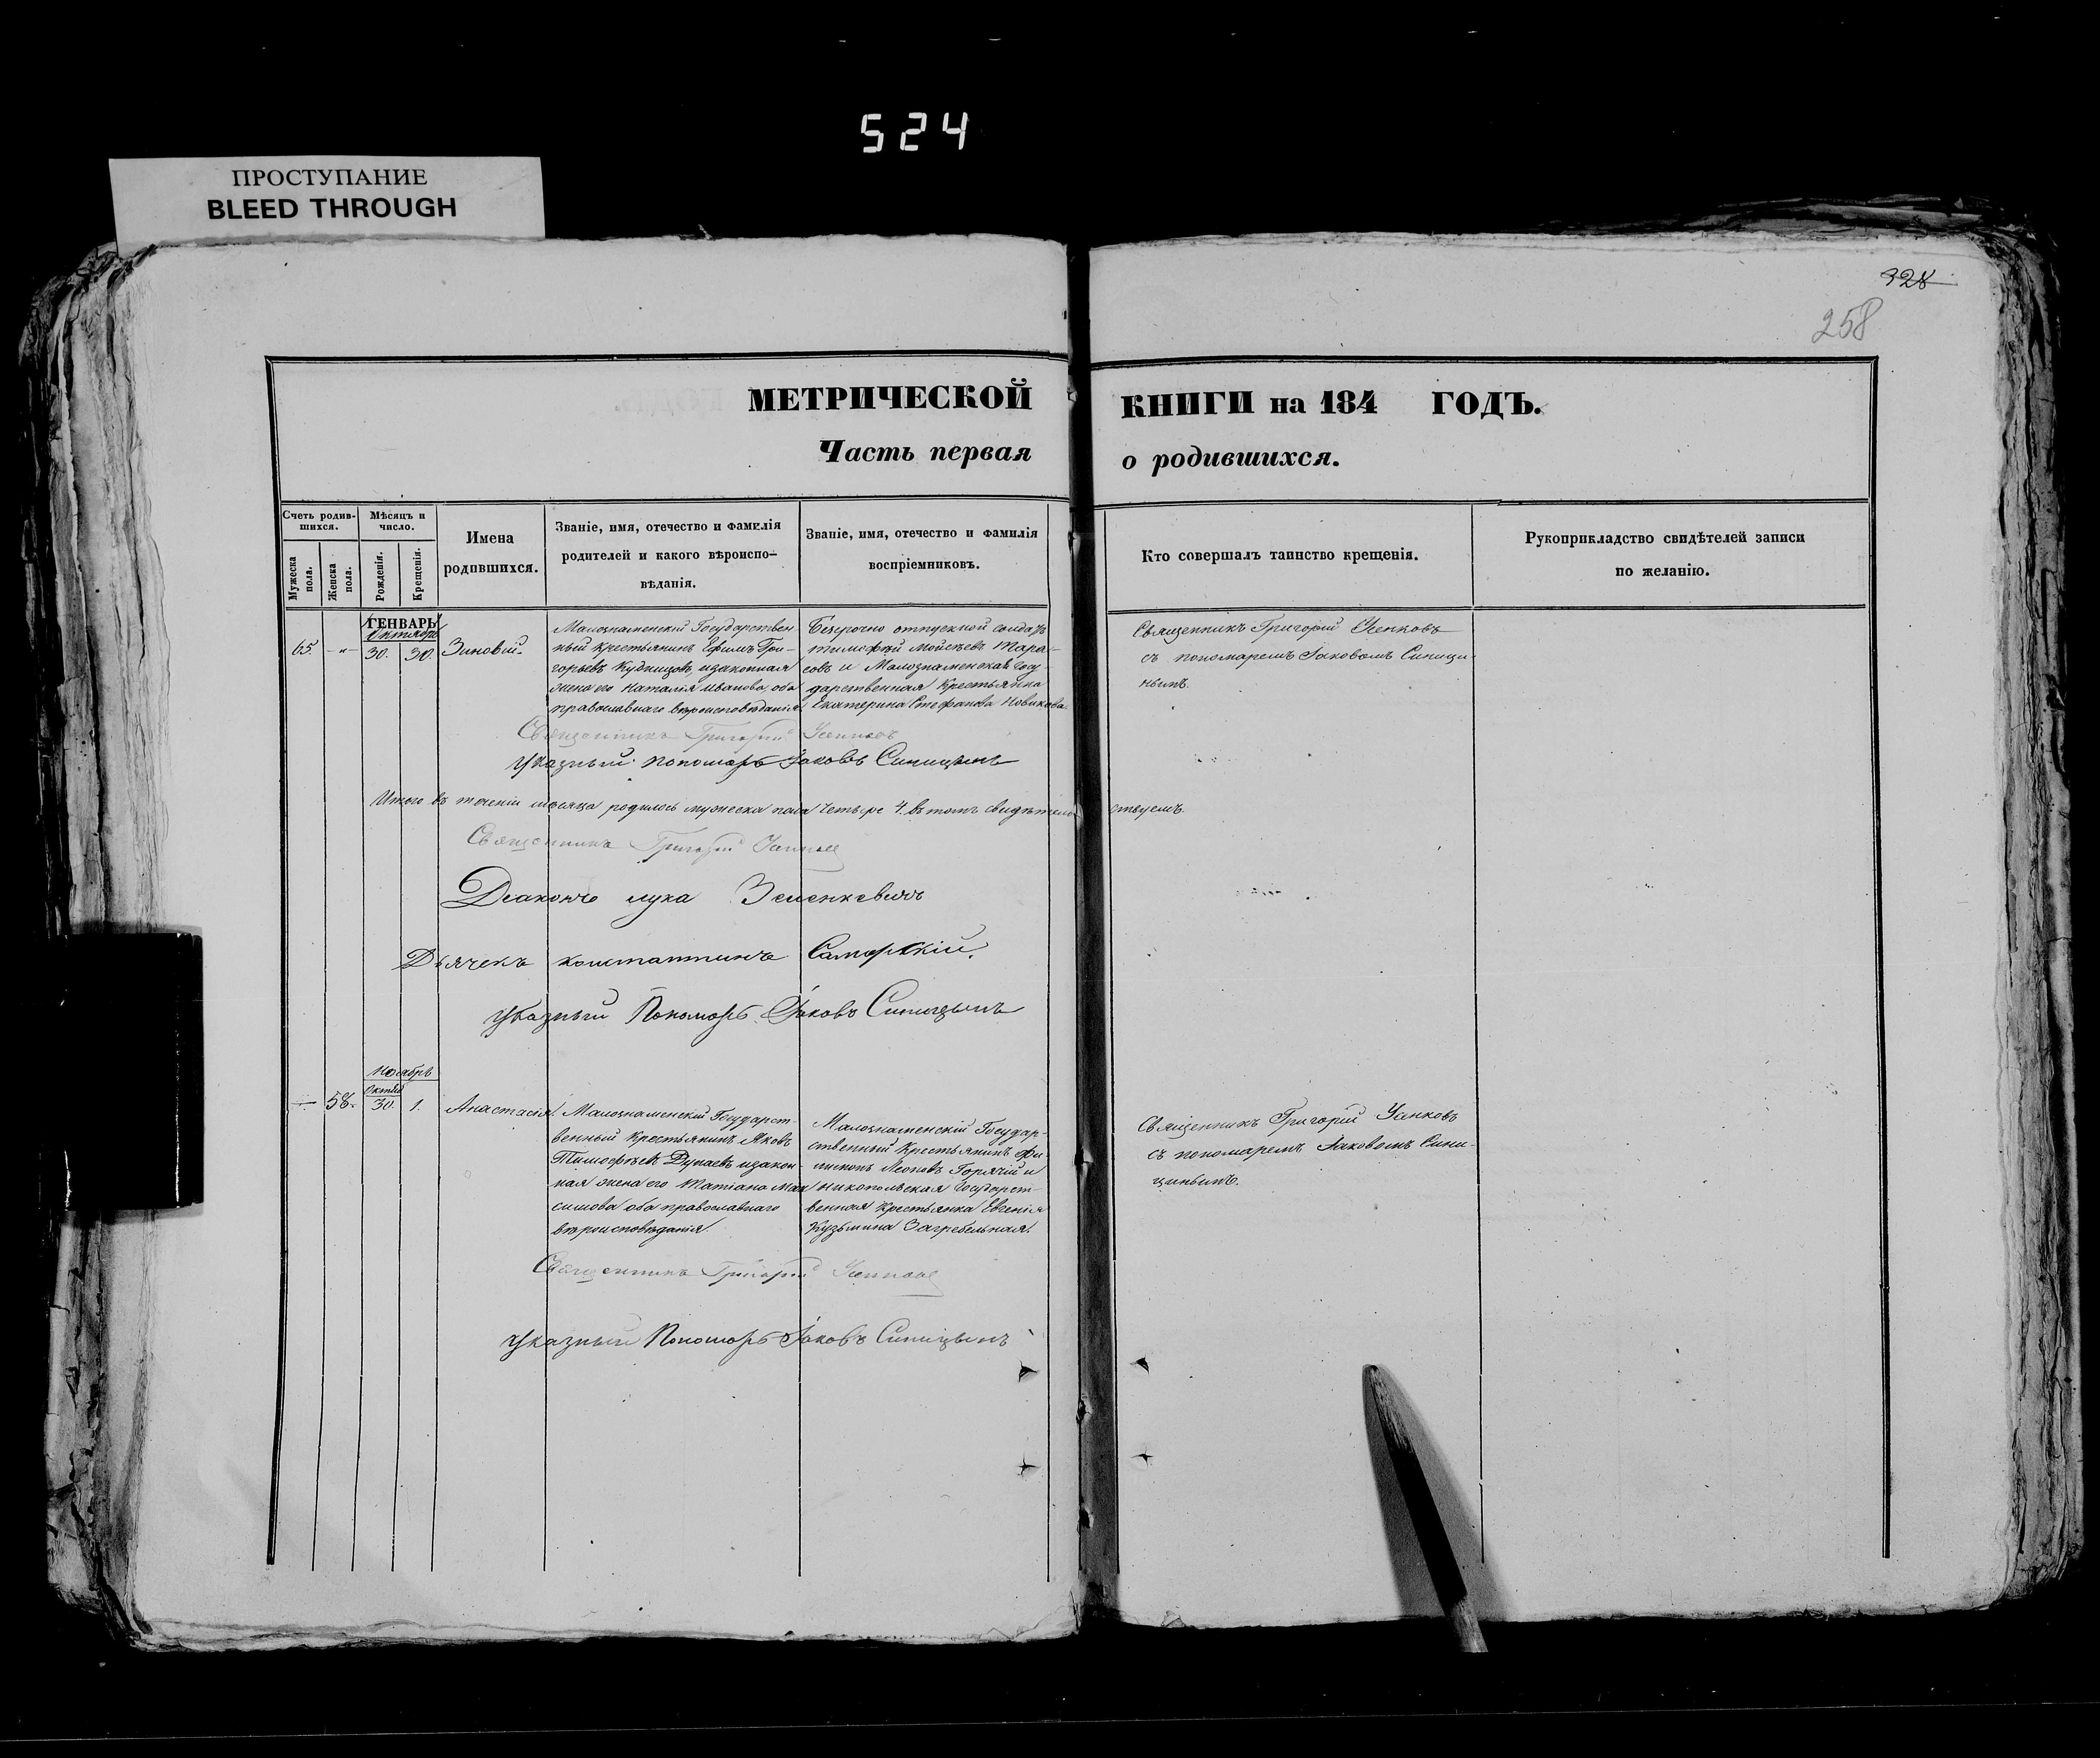 524
ПРОСТУПАНИЕ
BLEED THROUGH
328
258
МЕТРИЧЕСКОЙ КНИГИ на 184 ГОДЪ.
Часть первая о родившихся.
Счетъ родив-
шихся.
Мужеска пола.
Женска пола.
Мѣсяцъ и
число.
Рожденія.
Крещенія.
Имена
родившихся.
Званіе, имя, отечество и фамилія
родителей и какого вѣроиспо-
вѣданія.
Званіе, имя, отечество и фамилія
воспріемниковъ.
Кто совершалъ таинство крещенія.
Рукоприкладство свидѣтелей записи
по желанію.
ГЕНВАРЬ
Октябрь
65. -"- 30. 30. Зиновій.
Малознаменскій Государствен-
ный крестьянинъ Ефимъ Гри-
горьевъ изаконная
жена его Наталія Иванова, оба
православнаго вѣроисповѣданія
Безсрочно отпускной солдатъ
тимофѣй Мойсѣевъ Тара-
совъ и Малознаменская Госу-
дарственная Крестьянка
Екатерина Стефанова Новикова
Священникъ Григорій Усенковъ
съ пономаремъ Іаковомъ Синици-
нымъ.
Священникъ Григорій Усенковъ
указный пономарь Іаковъ Синицынъ
Итого въ теченіи мѣсяца родилось мужеска пола четыре 4. въ томъ свидѣтель ствуемъ
Священникъ Григорій Усенковъ
Діаконъ лука
Дьячекъ константинъ Самарскій.
указный Пономарь Іаковъ Синицынъ
Ноябрь
Октяб
58. 30. 1. Анастасія
Малознаменскій Государст-
венный Крестьянинъ Яковъ
Тимофѣевъ Дунаевъ изакон-
ная жена его Татіана Мак
симова оба православнаго
вѣроисповѣданія.
Малознаменскій Государ-
ственный Крестьянинъ Фи-
лимонъ Леоновъ Горячій и
Никопольская Государст-
венная Крестьянка Евгенія
Кузьмина Загребельная.
Священникъ Григорій Усенковъ
съ пономаремъ Іаковомъ Сини-
цинымъ.
Священникъ Григорій Усенковъ
указный Пономарь Іаковъ Синицынъ